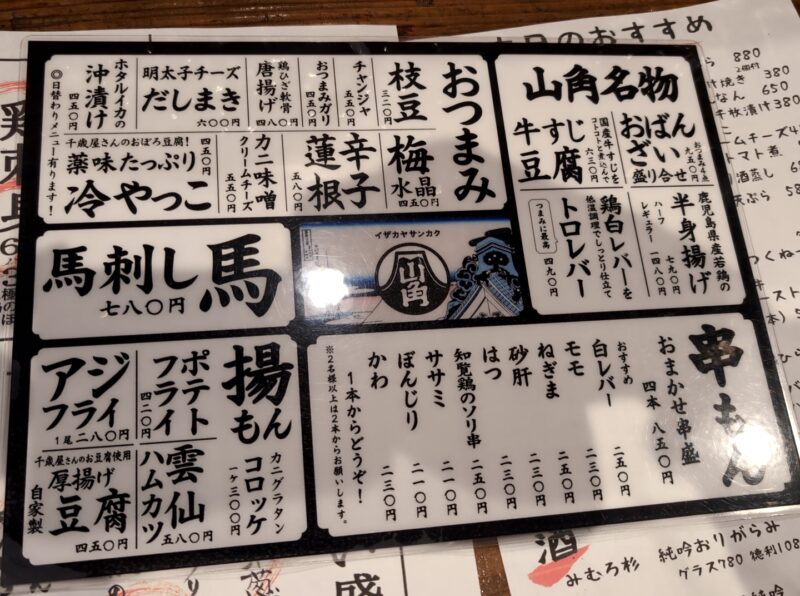 山角名物
おばんざい
盛り合せ
おつまみ4点
九五〇円
国産牛すじを
コトコトと煮込んで
牛すじ
豆腐
六三〇円
鹿児島県産若鶏の
半身揚げ
ハーフ 七九〇円
レギュラー 一四八〇円
鶏白レバーを
低温調理でしっとり仕立て
トロレバー
つまみに最高
四九〇円
おつまみ
枝豆
三二〇円
チャンジャ
五五〇円
おつまみガリ
四五〇円
鶏ひざ軟骨
唐揚げ
四八〇円
明太子チーズ
だしまき
六〇〇円
ホタルイカの
沖漬け
四五〇円
◎日替わりメニュー有ります!
梅
水晶
四五〇円
辛子
蓮根
五八〇円
カニ味噌
クリームチーズ
四五〇円
千歳屋さんのおぼろ豆腐!
薬味たっぷり
冷やっこ
四五〇円
馬
馬刺し
七八〇円
イザカヤサンカク
山角
串もん
おまかせ串盛
四本 八五〇円
おすすめ
白レバー 二五〇円
モモ 二三〇円
ねぎま 二五〇円
砂肝 二三〇円
はつ 二三〇円
知覧鶏のソリ串 二一〇円
ササミ 二一〇円
ぼんじり 二一〇円
かわ 二三〇円
1本からどうぞ!
※2名様以上は2本からお願いします。
揚もん
ポテト
フライ
四二〇円
アジ
フライ
1尾二八〇円
カニグラタン
コロッケ
一ヶ三〇〇円
雲仙
ハムカツ
五八〇円
千歳屋さんのお豆腐使用
厚揚げ
豆腐
自家製
四五〇円
のおすすめ
880
380
650
380
酒
みむろ杉 純吟おりがらみ
グラス780 徳利108